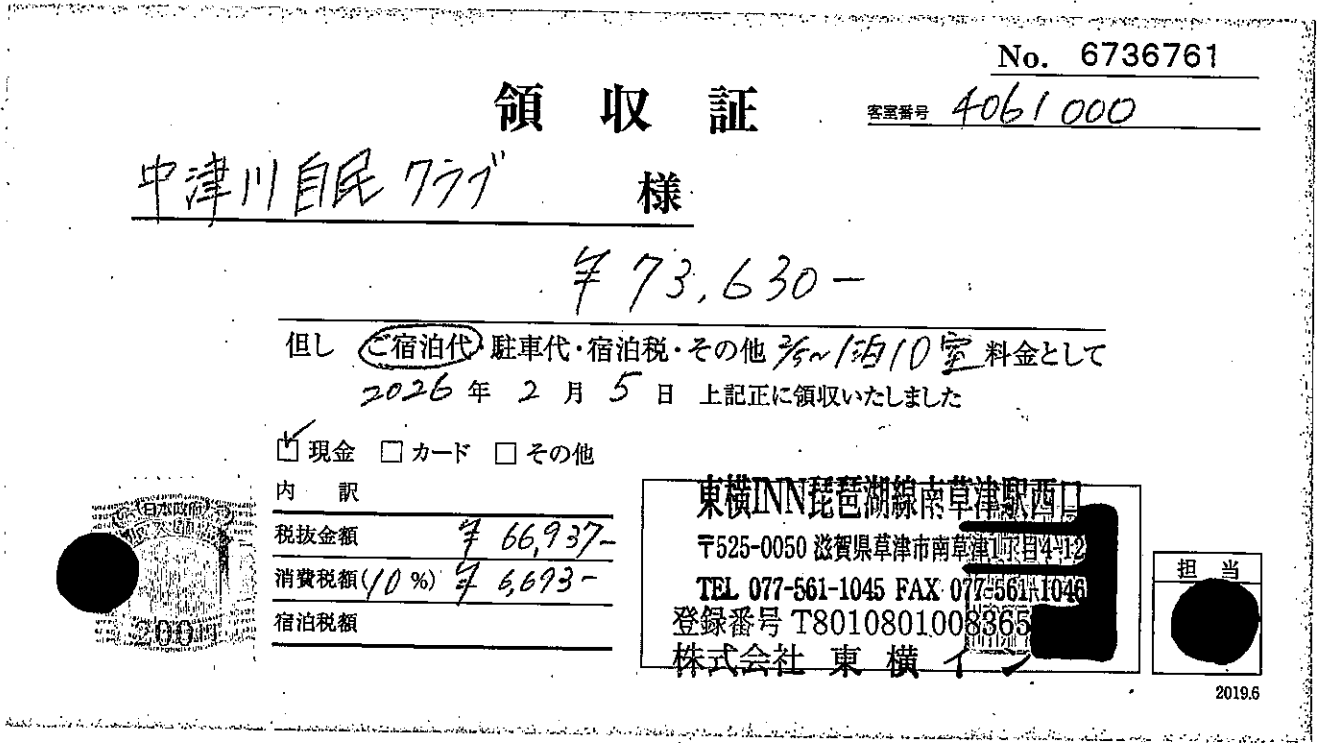 No. 6736761
領収証
客室番号 4061000
中津川自民クラブ 様
¥73,630-
但し ご宿泊代・駐車代・宿泊税・その他 2/5~1泊10室 料金として
2026年2月5日 上記正に領収いたしました
☑現金 □カード □その他
内訳
税抜金額 ¥66,937-
消費税額(10%) ¥6,693-
宿泊税額
日本政府
200円
東横INN琵琶湖線南草津駅西口
〒525-0050 滋賀県草津市南草津1丁目4-12
TEL 077-561-1045 FAX 077-561-1046
登録番号 T8010801008365
株式会社 東横イン
担当
2019.6